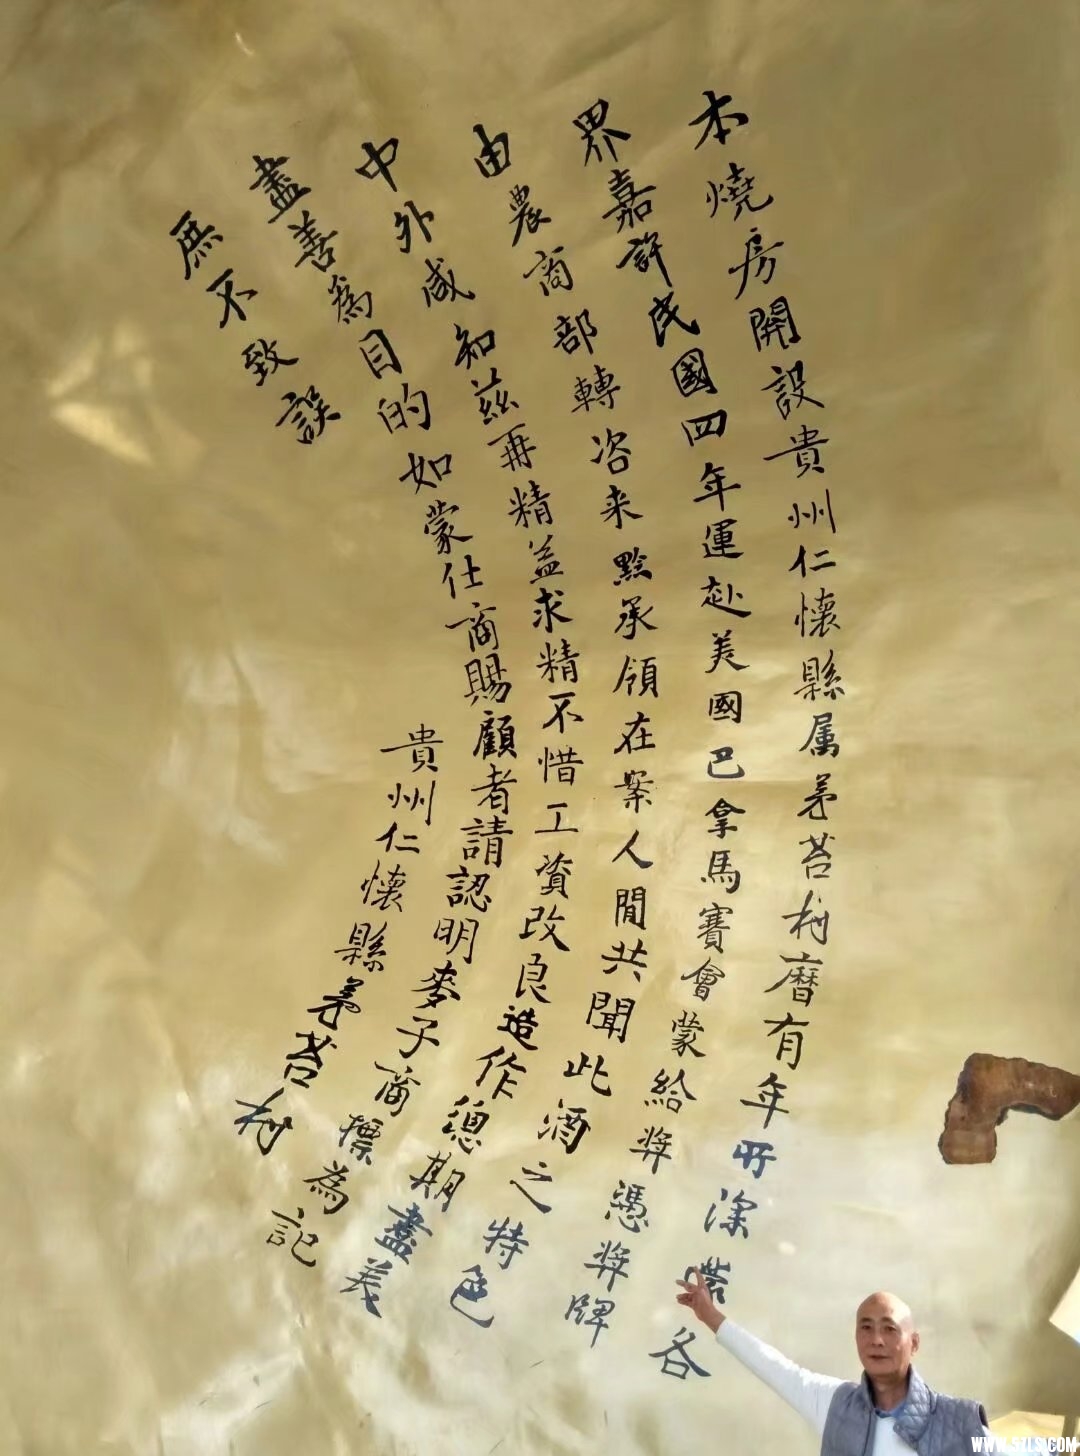 本燒房開設貴州仁懷縣属茅苔村曆有年所深各
界嘉許民國四年運赴美國巴拿馬賽會蒙給奖憑奖牌
由農商部轉咨来黔承領在案人閒共聞此酒之特色
中外咸知兹再精益求精不惜工資改良造作總期盡美
盡善為目的如蒙仕商賜顧者請認明麥子商標為記
庶不致誤
貴州仁懷縣茅苔村